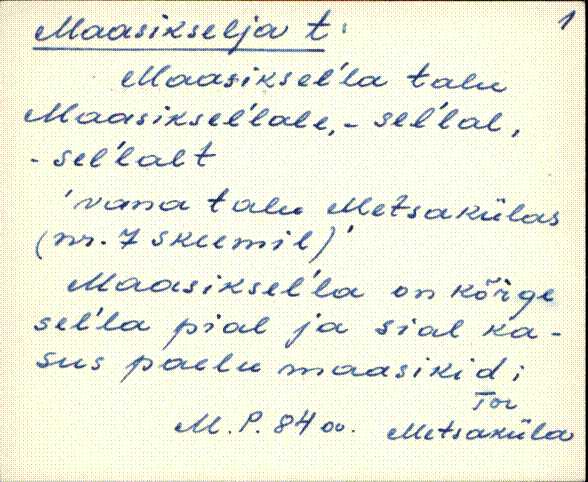 Maasikselja t. 1
Maasiksel'la talu
Maasiksel'lale, - sel'lal,
- sel'lalt
'vana talu Metsakülas
(nr. 7 skeemil)'
Maasiksel'la on kõrge
sel'la pial ja sial ka-
sus paelu maasikid;
Tor
M. P. 84 a. Metsaküla